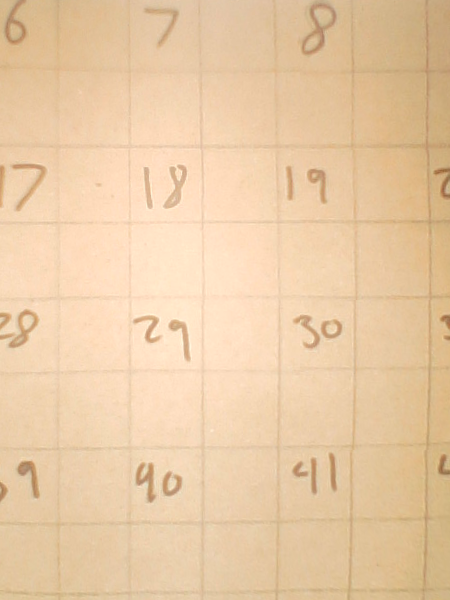 6 7 8
17 18 19
28 29 30
40 41